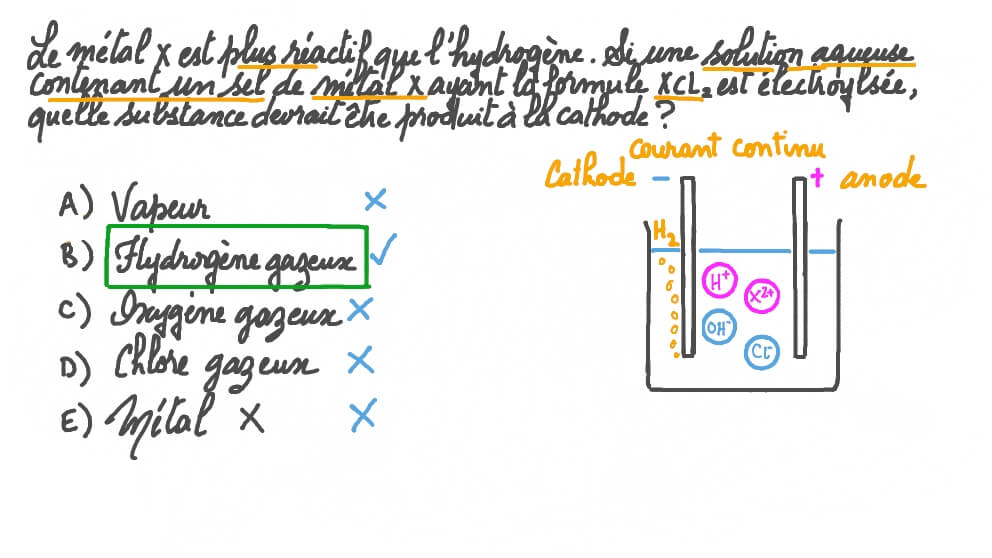 Le métal X est plus réactif que l'hydrogène. Si une solution aqueuse
contenant un sel de métal X ayant la formule XCL₂ est électroylsée,
quelle substance devrait être produit à la cathode ?
courant continu
Cathode - + anode
A) Vapeur ×
B) Hydrogène gazeux ✓
C) Oxygène gazeux ×
D) Chlore gazeux ×
E) Métal X ×
H₂
H⁺
X²⁺
OH⁻
Cl⁻